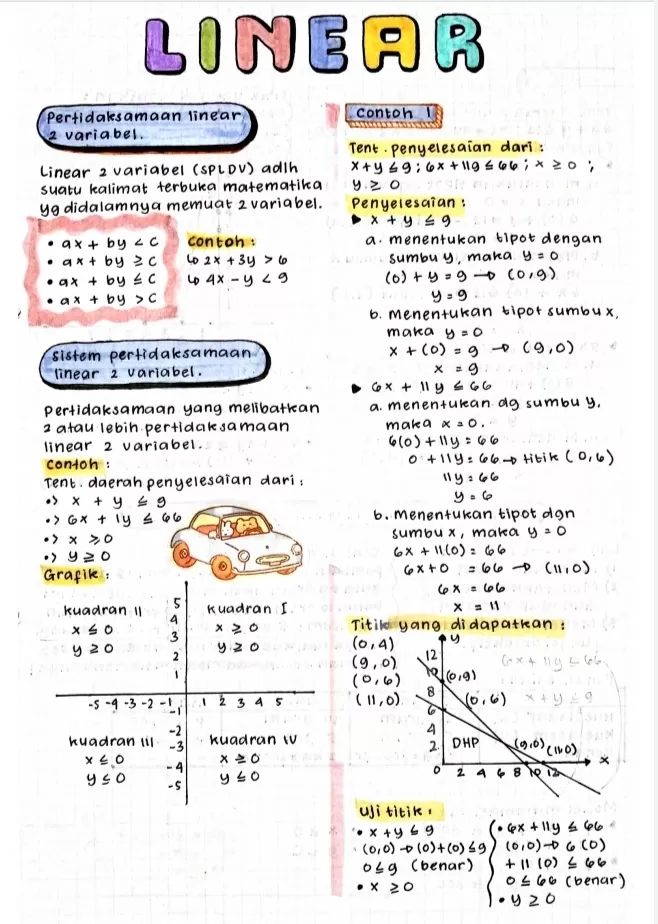 LINEAR
Pertidaksamaan linear
2 variabel.
Linear 2 variabel (SPLDV) adlh
suatu kalimat terbuka matematika
yg didalamnya memuat 2 variabel.
• ax + by < c
• ax + by ≥ c
• ax + by ≤ c
• ax + by > c
Contoh :
↳ 2x + 3y > 6
↳ 4x - y < 9
Sistem pertidaksamaan
linear 2 variabel.
Pertidaksamaan yang melibatkan
2 atau lebih pertidaksamaan
linear 2 variabel.
Contoh :
Tent. daerah penyelesaian dari :
•> x + y ≤ 9
•> 6x + 1y ≤ 66
•> x ≥ 0
•> y ≥ 0
Grafik :
kuadran II
x ≤ 0
y ≥ 0
kuadran I
x ≥ 0
y ≥ 0
5
4
3
2
1
-5 -4 -3 -2 -1 1 2 3 4 5
-1
-2
-3
-4
-5
kuadran III
x ≤ 0
y ≤ 0
kuadran IV
x ≥ 0
y ≤ 0
Contoh 1
Tent. penyelesaian dari :
x+y ≤ 9 ; 6x + 11y ≤ 66 ; x ≥ 0 ;
y ≥ 0
Penyelesaian :
▶ x + y ≤ 9
a. menentukan tipot dengan
sumbu y, maka y = 0
(0) + y = 9 → (0,9)
y = 9
b. menentukan tipot sumbu x,
maka y = 0
x + (0) = 9 → (9,0)
x = 9
▶ 6x + 11y ≤ 66
a. menentukan dg sumbu y,
maka x = 0.
6(0) + 11y = 66
0 + 11y = 66 → titik (0,6)
11y = 66
y = 6
b. menentukan tipot dgn
sumbu x, maka y = 0
6x + 11(0) = 66
6x + 0 = 66 → (11,0)
6x = 66
x = 11
Titik yang didapatkan :
(0,4)
(9,0)
(0,6)
(11,0)
y
12
10
8
6
4
2
0 2 4 6 8 10 12
x
(0,9)
(0,6)
(9,0)
(11,0)
DHP
6x + 11y ≤ 66
x + y ≤ 9
Uji titik :
• x + y ≤ 9
(0,0) → (0)+(0) ≤ 9
0 ≤ 9 (benar)
• x ≥ 0
• 6x + 11y ≤ 66
(0,0) → 6 (0)
+ 11 (0) ≤ 66
0 ≤ 66 (benar)
• y ≥ 0